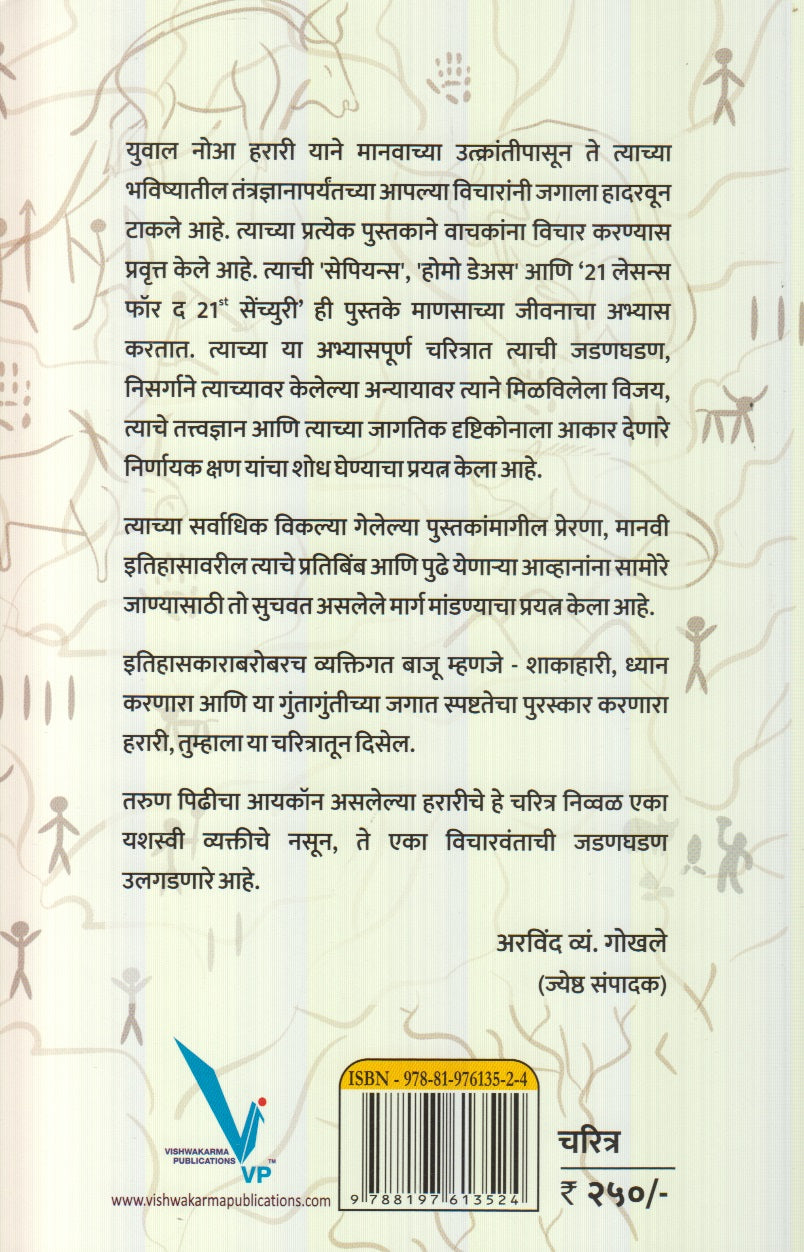 युवाल नोआ हरारी याने मानवाच्या उत्क्रांतीपासून ते त्याच्या
भविष्यातील तंत्रज्ञानापर्यंतच्या आपल्या विचारांनी जगाला हादरवून
टाकले आहे. त्याच्या प्रत्येक पुस्तकाने वाचकांना विचार करण्यास
प्रवृत्त केले आहे. त्याची 'सेपियन्स', 'होमो डेअस' आणि ‘21 लेसन्स
फॉर द 21st सेंच्युरी’ ही पुस्तके माणसाच्या जीवनाचा अभ्यास
करतात. त्याच्या या अभ्यासपूर्ण चरित्रात त्याची जडणघडण,
निसर्गाने त्याच्यावर केलेल्या अन्यायावर त्याने मिळविलेला विजय,
त्याचे तत्त्वज्ञान आणि त्याच्या जागतिक दृष्टिकोनाला आकार देणारे
निर्णायक क्षण यांचा शोध घेण्याचा प्रयत्न केला आहे.
त्याच्या सर्वाधिक विकल्या गेलेल्या पुस्तकांमागील प्रेरणा, मानवी
इतिहासावरील त्याचे प्रतिबिंब आणि पुढे येणाऱ्या आव्हानांना सामोरे
जाण्यासाठी तो सुचवत असलेले मार्ग मांडण्याचा प्रयत्न केला आहे.
इतिहासकाराबरोबरच व्यक्तिगत बाजू म्हणजे - शाकाहारी, ध्यान
करणारा आणि या गुंतागुंतीच्या जगात स्पष्टतेचा पुरस्कार करणारा
हरारी, तुम्हाला या चरित्रातून दिसेल.
तरुण पिढीचा आयकॉन असलेल्या हरारीचे हे चरित्र निव्वळ एका
यशस्वी व्यक्तीचे नसून, ते एका विचारवंताची जडणघडण
उलगडणारे आहे.
अरविंद व्यं. गोखले
(ज्येष्ठ संपादक)
VISHWAKARMA
PUBLICATIONS
VP™
www.vishwakarmapublications.com
ISBN - 978-81-976135-2-4
9 788197 613524
चरित्र
₹ २५०/-